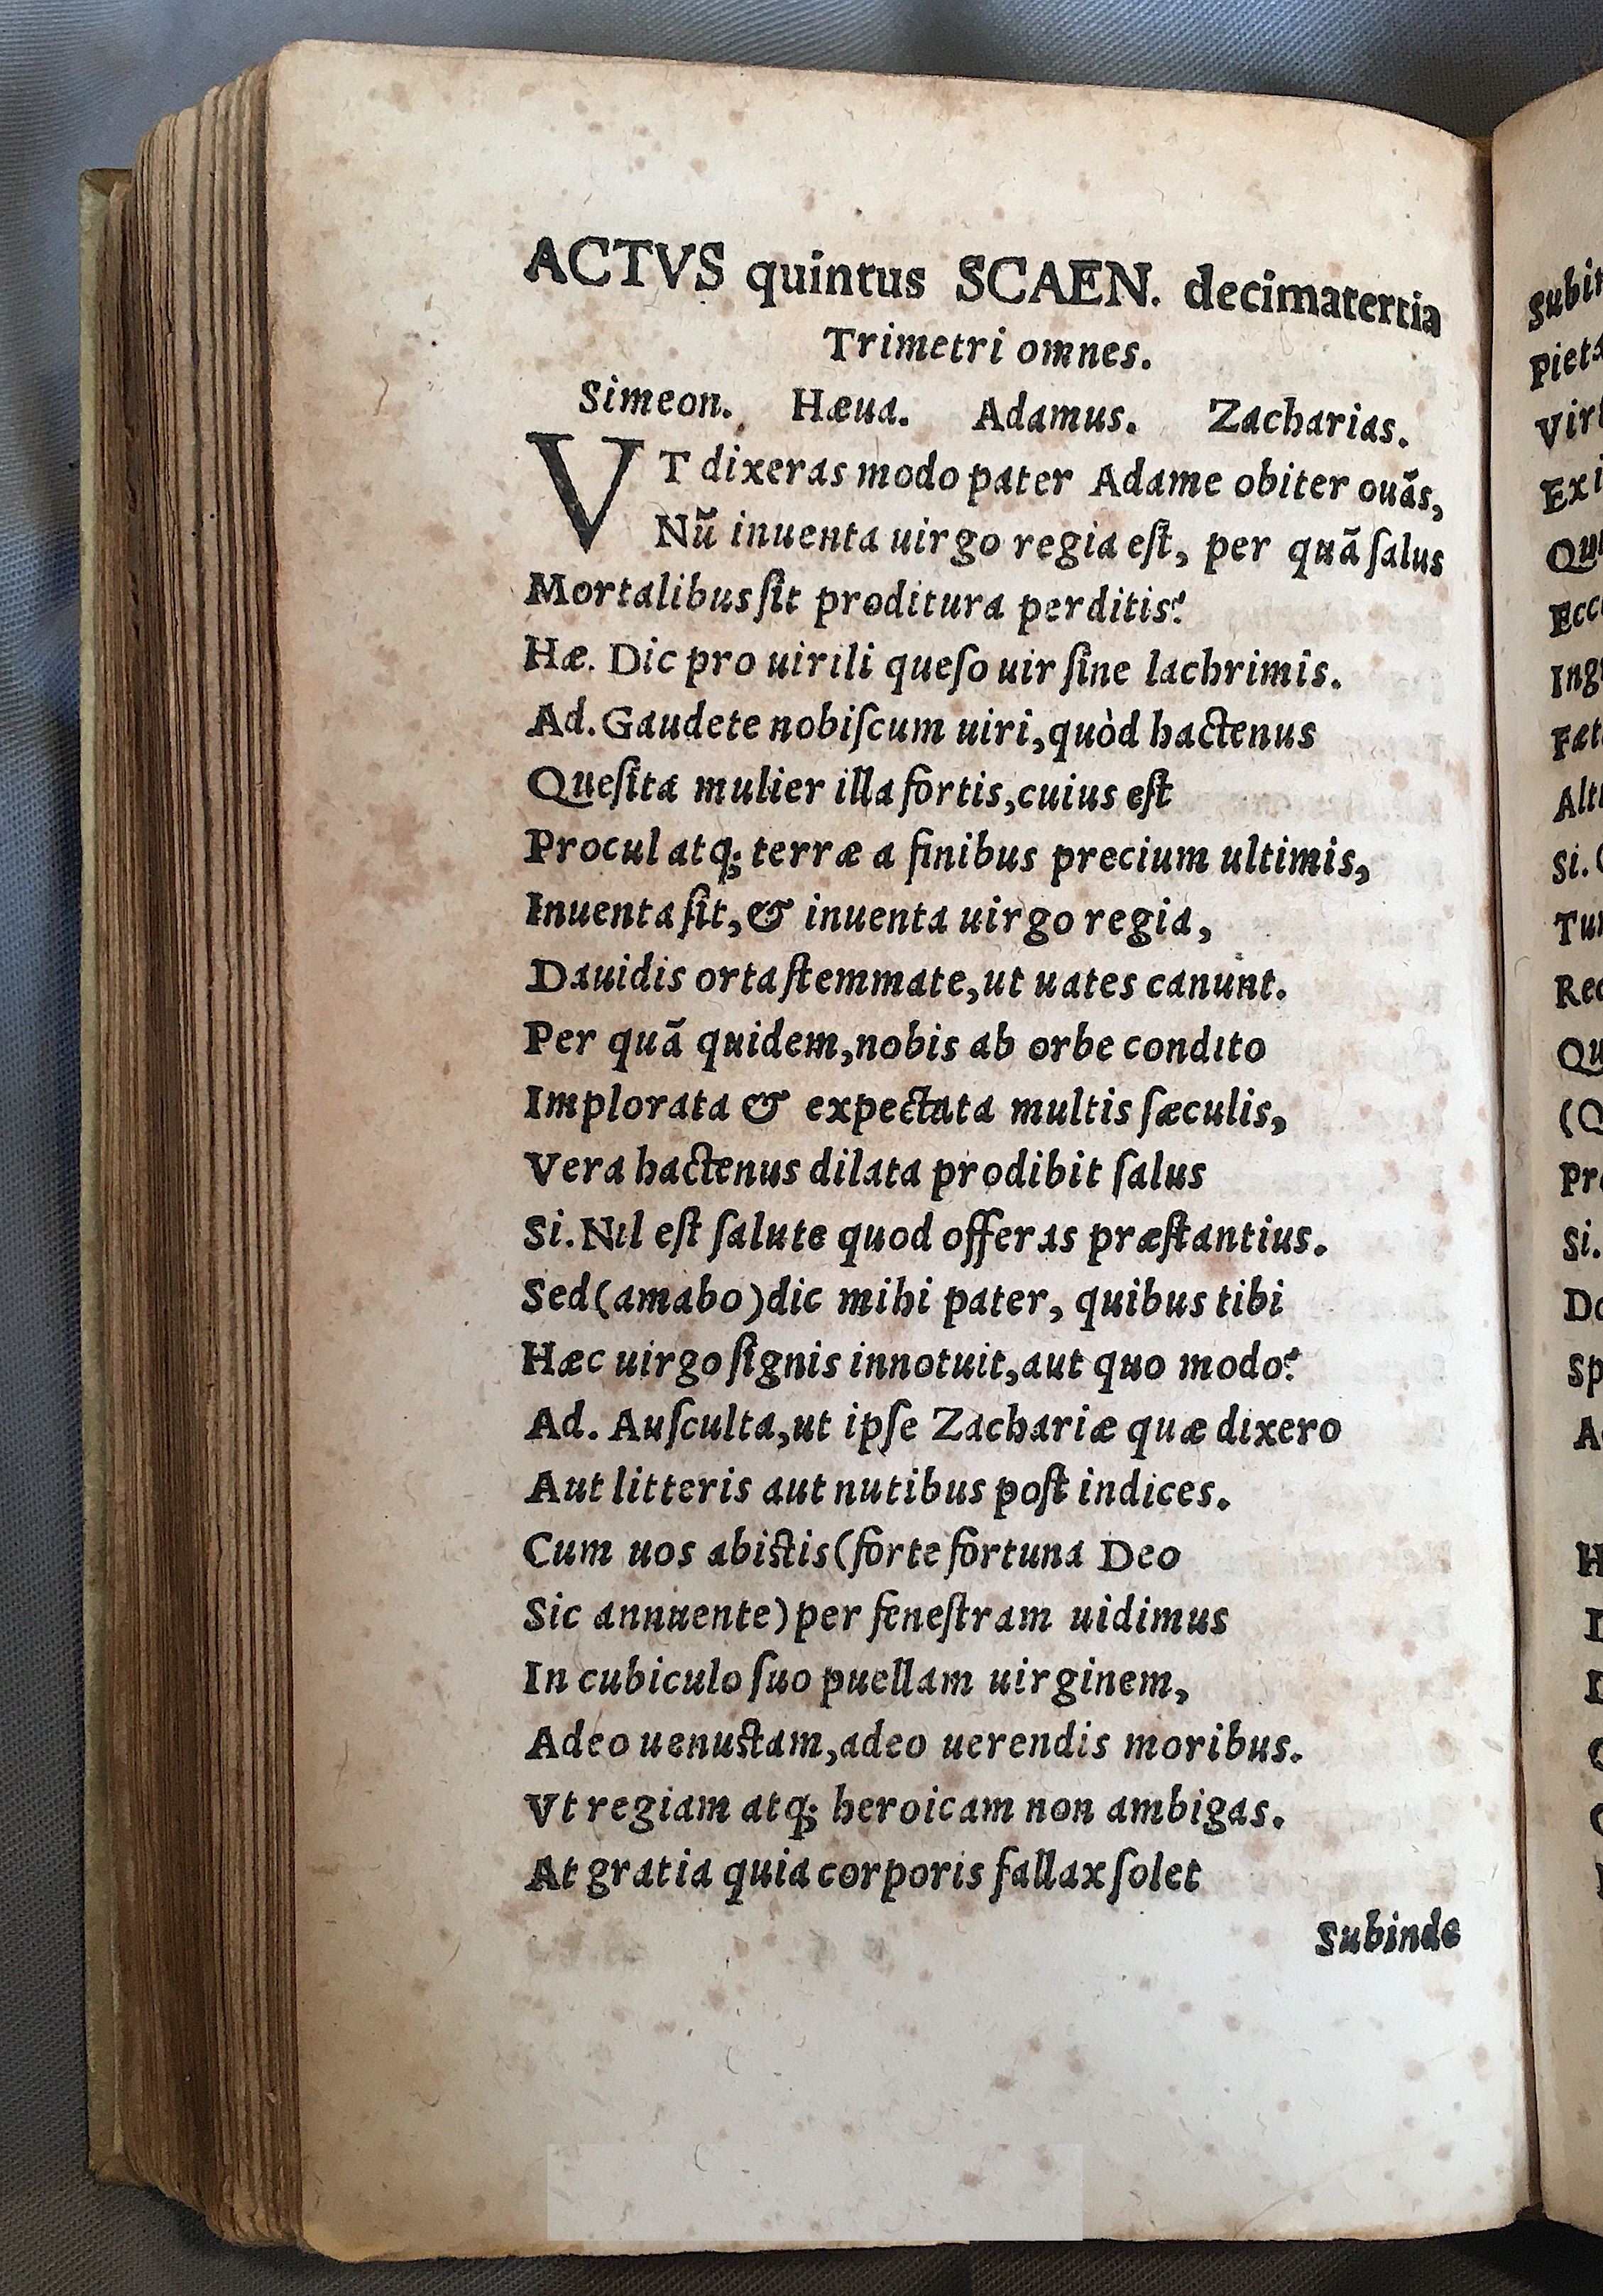 ACTVS quintus SCAEN. decimatertia
Trimetri omnes.
Simeon. Hæua. Adamus. Zacharias.
VT dixeras modo pater Adame obiter ouãs,
Nũ inuenta uirgo regia eſt, per quã ſalus
Mortalibus ſit proditura perditis?
Hæ. Dic pro uirili queſo uir ſine lachrimis.
Ad. Gaudete nobiſcum uiri, quòd hactenus
Queſita mulier illa fortis, cuius eſt
Procul atq; terræ a finibus precium ultimis,
Inuenta ſit, & inuenta uirgo regia,
Dauidis orta ſtemmate, ut uates canunt.
Per quã quidem, nobis ab orbe condito
Implorata & expectata multis ſæculis,
Vera hactenus dilata prodibit ſalus
Si. Nil eſt ſalute quod offeras præſtantius.
Sed (amabo) dic mihi pater, quibus tibi
Hæc uirgo ſignis innotuit, aut quo modo?
Ad. Auſculta, ut ipſe Zachariæ quæ dixero
Aut litteris aut nutibus poſt indices.
Cum uos abiſtis (forte fortuna Deo
Sic annuente) per feneſtram uidimus
In cubiculo ſuo puellam uirginem,
Adeo uenuſtam, adeo uerendis moribus.
Vt regiam atq; heroicam non ambigas.
At gratia quia corporis fallax ſolet
Subinde
Si.
Si.